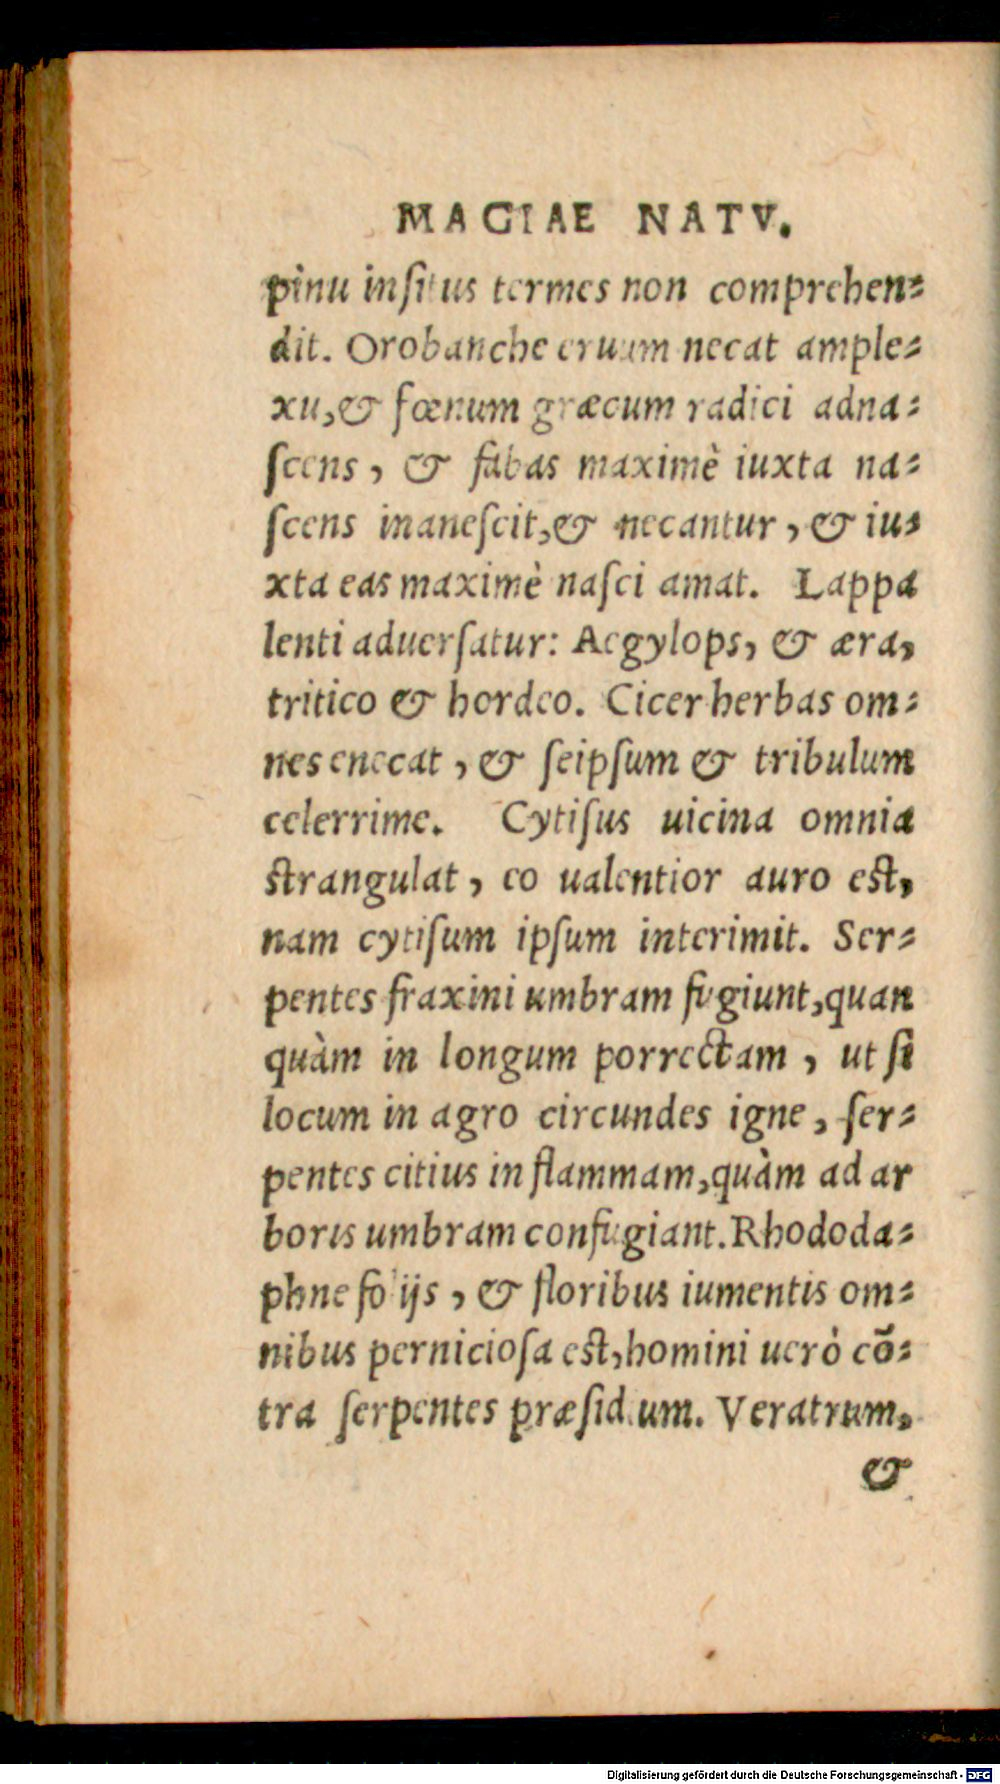 MAGIAE NATV.
pinu insitus termes non comprehen⸗
dit. Orobanche eruum necat ample⸗
xu,& fœnum græcum radici adna⸗
ſcens, & fabas maximè iuxta na⸗
ſcens inaneſcit,& necantur, & iu⸗
xta eas maximè naſci amat. Lappa
lenti aduerſatur: Aegylops, & æra,
tritico & hordeo. Cicer herbas om⸗
nes enecat, & ſeipſum & tribulum
celerrime. Cytiſus uicina omnia
ſtrangulat, eo ualentior auro eſt,
nam cytiſum ipſum interimit. Ser⸗
pentes fraxini umbram fugiunt,quan
quàm in longum porrectam, ut ſi
locum in agro circundes igne, ſer⸗
pentes citius in flammam,quàm ad ar
boris umbram confugiant. Rhododa⸗
phne folijs, & floribus iumentis om⸗
nibus pernicioſa eſt,homini uerò cõ⸗
tra ſerpentes præſidium. Veratrum,
&
Digitalisierung gefördert durch die Deutsche Forschungsgemeinschaft - DFG